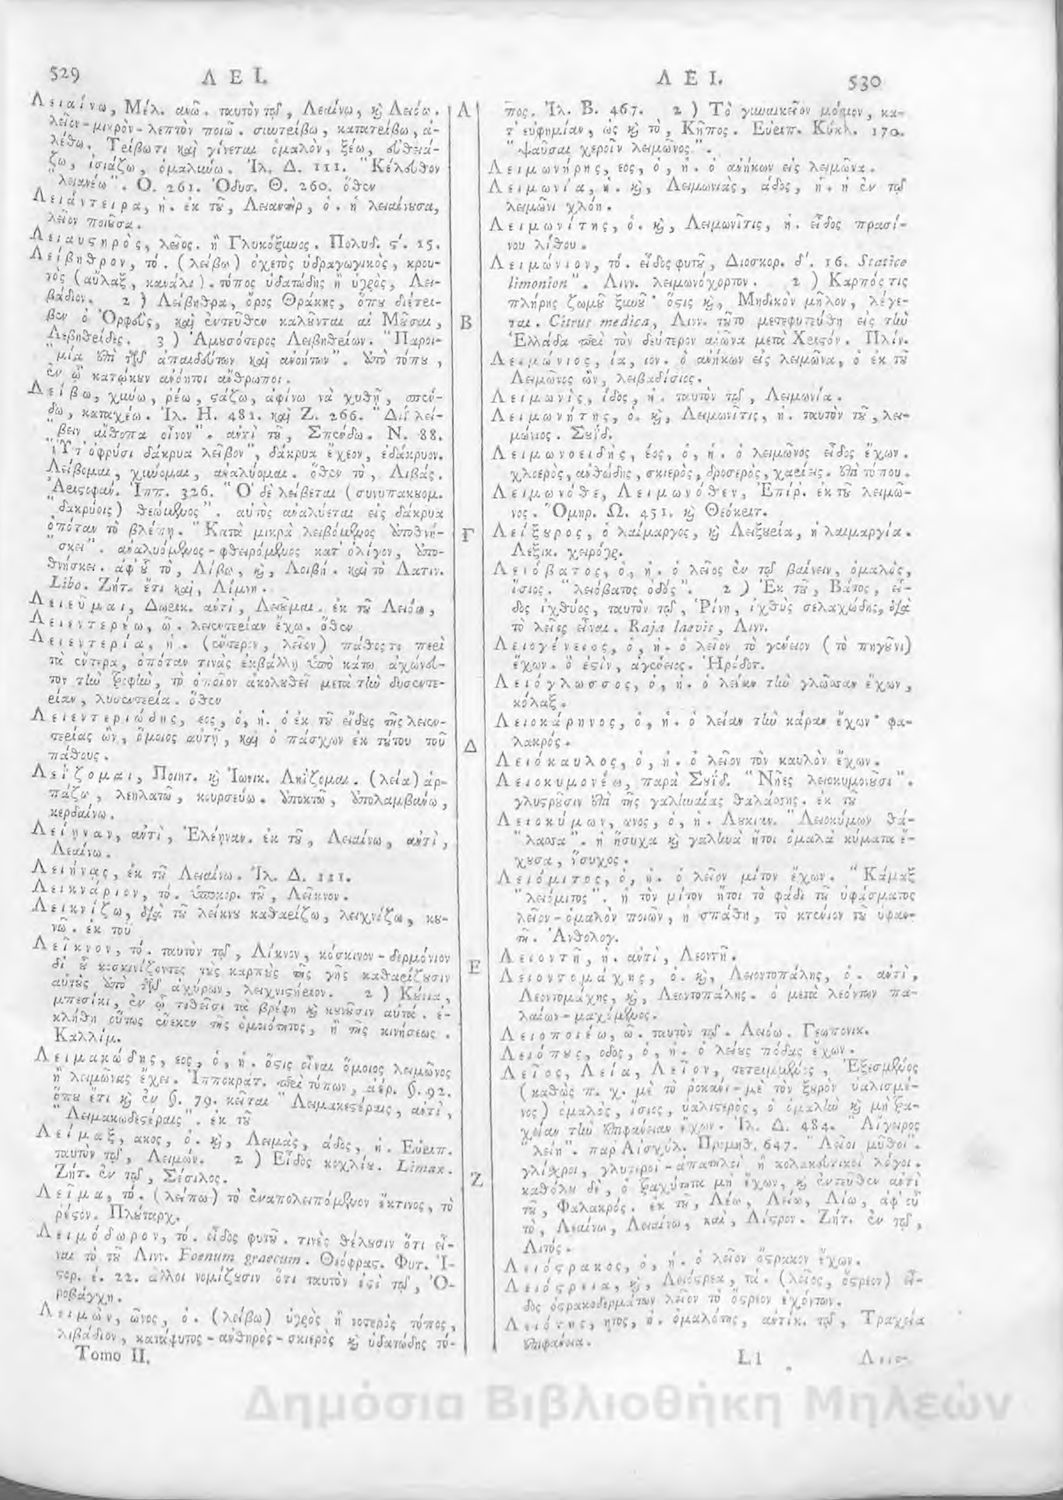 529 ΛΕΙ.
Λειαίνω, Μέλ. ανῶ. ταυτὸν τῷ, Λεαίνω, ϗ Λειόω.
λεῖον-μικρὸν-λεπτὸν ποιῶ. συντρίβω, κατατρίβω, ἀ-
λέθω. Τρίβω τι καὶ γίνεται ὁμαλὸν, ξέω,
ζω, ἰσιάζω, ὁμαλύνω. Ἰλ. Δ. 111. "Κέλευθον
"λειανέω". Ο. 261. Ὀδυσ. Θ. 260. ὅθεν
Λειάντειρα, ἡ. ἐκ τȣ͂, Λειαντὴρ, ὁ. ἡ λειαίνουσα,
λεῖον ποιοῦσα.
Λειαυςηρὸς, λεῖος. ἢ Γλυκόξυνος. Πολυδ. ς'. 15.
Λείβηθρον, τό. (λείβω) ὀχετὸς ὑδραγωγικὸς, κρου-
νὸς (αὖλαξ, κανάλι). τόπος ὑδατώδης ἢ ὑγρὸς, Λει-
βάδιον. 2) Λείβηθρα, ὄρος Θρᾴκης, ὅπȣ διέτρι-
βεν ὁ Ὀρφεὺς, καὶ ἐντεῦθεν καλȣ͂νται αἱ Μȣ͂σαι,
Λειβηθρίδες. 3) Ἀμυσότερος Λειβηθρίων. "Παροι-
"μία ἐπὶ τῶν ἀπαιδεύτων καὶ ἀνοήτων". ἀπὸ τόπȣ,
ἐν ᾧ κατῴκȣν ἀνόητοι ἄνθρωποι.
Λείβω, χύνω, ῥέω, ςάζω, ἀφίνω νὰ χυθῇ, σπέν-
δω, καταχέω. Ἰλ. Η. 481. καὶ Ζ. 266. "Διῒ λεί-
"βειν αἴθοπα οἶνον". ἀντὶ τȣ͂, Σπένδω. Ν. 88.
"Ὑπ' ὀφρύσι δάκρυα λεῖβον", δάκρυα ἔχεον, ἐδάκρυον.
Λείβομαι, χύνομαι, ἀναλύομαι. ὅθεν τὸ, Λιβάς.
Ἀριςοφάν. Ἱππ. 326. "Ὁ δὲ λείβεται (συνυπακȣομ.
"δακρύοις) θεώμενος". αὐτὸς ἀναλύεται εἰς δάκρυα
ὁπόταν τὸ βλέπῃ. "Κατὰ μικρὰ λειβόμενος ἀποθνή-
"σκει". ἀναλυόμενος-φθειρόμενος κατ' ὀλίγον, ἀπο-
θνήσκει. ἀφ' ȣ̔͂ τὸ, Λίβω, ϗ, Λοιβή. καὶ τὸ Λατιν.
Libo. Ζήτ. ἔτι καὶ, Λίμνη.
Λειεῦμαι, Δωρικ. ἀντὶ, Λειȣ͂μαι. ἐκ τȣ͂ Λειόω,
Λειεντερέω, ῶ. λειεντερίαν ἔχω. ὅθεν
Λειεντερία, ἡ. (ἔντερον, λεῖον) πάθος τι περὶ
τὰ ἔντερα, ὁπόταν τινὰς ἐκβάλλῃ ἀπὸ κάτω ἀχώνευ-
τον τὴν τροφὴν, τὸ ὁποῖον ἀκολȣθεῖ μετὰ τὴν δυσεντε-
ρίαν, λυσεντερία. ὅθεν
Λειεντεριώδης, εος, ὁ, ἡ. ὁ ἐκ τȣ͂ εἴδȣς τῆς λειεν-
τερίας ὢν, ὅμοιος αὐτῇ, καὶ ὁ πάσχων ἐκ τȣ́τȣ τοῦ
πάθους.
Λεΐζομαι, Ποιητ. ϗ Ἰωνικ. Ληΐζομαι. (λεία) ἁρ-
πάζω, λεηλατῶ, κȣρσεύω. ἀποκτῶ, ἀπολαμβάνω,
κερδαίνω.
Λείηναν, ἀντὶ, Ἐλέηναν. ἐκ τȣ͂, Λειαίνω, ἀντὶ,
Λεαίνω.
Λειήνας, ἐκ τȣ͂ Λειαίνω. Ἰλ. Δ. 111.
Λεικνάριον, τό. ὑποκορ. τȣ͂, Λεῖκνον.
Λεικνίζω, διὰ τȣ͂ λείκνȣ καθαρίζω, λειχνίζω, κȣ-
νῶ. ἐκ τοῦ
Λεῖκνον, τό. ταυτὸν τῷ, Λίκνον, κόσκινον-δερμόνιον
δι' ȣ̔͂ κοσκινίζοντες τȣ̀ς καρπȣ̀ς τῆς γῆς καθαρίζȣσιν
αὐτȣ̀ς ἀπὸ τῶν ἀχύρων, λειχνιςήριον. 2) Κȣ́νια,
μπεσίκι, ἐν ᾧ τιθεῖσι τὰ βρέφη ϗ κȣνȣ͂σιν αὐτά. ἐ-
κλήθη οὕτως ἕνεκεν τῆς ὁμοιότητος, ἢ τῆς κινήσεως.
Καλλίμ.
Λειμακώδης, εος, ὁ, ἡ. ὅςις εἶναι ὅμοιος λειμῶνος
ἢ λειμῶνας ἔχει. Ἱπποκρατ. περὶ τόπων, ἀέρ. §. 92.
ὅπȣ ἔτι ϗ ἐν §. 79. κεῖται "Λειμακεςέραις, ἀντὶ,
"Λειμακωδεςέραις". ἐκ τȣ͂
Λείμαξ, ακος, ὁ. ϗ, Λειμὰς, άδος, ἡ. Εὐριπ.
ταυτὸν τῷ, Λειμών. 2) Εἶδος κοχλίȣ. Limax.
Ζήτ. ἐν τῷ, Σέσιλος.
Λεῖμα, τό. (λείπω) τὸ ἐναπολειπόμενον ἔκτινος, τὸ
ῥέςον. Πλȣ́ταρχ.
Λειμόδωρον, τό. εἶδος φυτȣ͂. τινὲς θέλȣσιν ὅτι εἶ-
ναι τὸ τȣ͂ Λινν. Foenum graecum. Θεόφρας. Φυτ. Ἱ-
ςορ. έ. 22. ἄλλοι νομίζȣσιν ὅτι ταυτὸν ἐςὶ τῷ, Ὀ-
ροβάγχη.
Λειμὼν, ῶνος, ὁ. (λείβω) ὑγρὸς ἢ νοτερὸς τόπος,
λιβάδιον, κατάφυτος-ἀνθηρὸς-σκιερὸς ϗ ὑδατώδης τό-
Tomo II.
Α
Β
Γ
Δ
Ε
Ζ
ΛΕΙ. 530
πος. Ἰλ. Β. 467. 2) Τὸ γυναικεῖον μόριον, κα-
τ' εὐφημίαν, ὡς ϗ τὸ, Κῆπος. Εὐριπ. Κύκλ. 170.
"Ψαῦσαι χεροῖν λειμῶνος".
Λειμωνήρης, εος, ὁ, ἡ. ὁ ἀνήκων εἰς λειμῶνα.
Λειμωνία, ἡ. ϗ, Λειμωνιὰς, άδος, ἡ. ἡ ἐν τῷ
λειμῶνι χλόη.
Λειμωνίτης, ὁ. ϗ, Λειμωνῖτις, ἡ. εἶδος πρασί-
νου λίθου.
Λειμώνιον, τό. εἶδος φυτȣ͂, Διοσκορ. δ'. 16. Statice
limonion". Λινν. λειμωνόχορτον. 2) Καρπός τις
πλήρης ζωμȣ͂ ξινȣ͂· ὅςις ϗ, Μηδικὸν μῆλον, λέγε-
ται. Citrus medica, Λινν. τȣ͂το μετεφυτεύθη εἰς τὴν
Ἑλλάδα περὶ τὸν δεύτερον αἰῶνα μετὰ Χριςόν. Πλίν.
Λειμώνιος, ία, ιον. ὁ ἀνήκων εἰς λειμῶνα, ὁ ἐκ τȣ͂
Λειμῶνος ὢν, λειβαδίσιος.
Λειμωνὶς, ίδος, ἡ. ταυτὸν τῷ, Λειμωνία.
Λειμωνήτης, ὁ. ϗ, Λειμωνῖτις, ἡ. ταυτὸν τȣ͂, λει-
μώνιος. Σȣΐδ.
Λειμωνοειδὴς, έος, ὁ, ἡ. ὁ λειμῶνος εἶδος ἔχων.
χλοερὸς, ἀνθώδης, σκιερὸς, δροσερὸς, χαρίεις. ἐπὶ τόπου.
Λειμωνόθε, Λειμωνόθεν, Ἐπίρ. ἐκ τȣ͂ λειμῶ-
νος. Ὅμηρ. Ω. 451. ϗ Θεόκριτ.
Λείξȣρος, ὁ λαίμαργος, ϗ Λειξȣρία, ἡ λαιμαργία.
Λεξικ. χειρόγρ.
Λειόβατος, ὁ, ἡ. ὁ λεῖος ἐν τῷ βαίνειν, ὁμαλὸς,
ἴσιος. "λειόβατος ὁδός". 2) Ἐκ τȣ͂, Βάτος, εἶ-
δος ἰχθύος, ταυτὸν τῷ, Ῥίνη, ἰχθὺς σελαχώδης, διὰ
τὸ λεῖος εἶναι. Raja laevis, Λινν.
Λειογένειος, ὁ, ἡ. ὁ λεῖον τὸ γένειον (τὸ πηγȣ́νι)
ἔχων. ὅ ἐςὶν, ἀγένειος. Ἡρόδοτ.
Λειόγλωσσος, ὁ, ἡ. ὁ λείαν τὴν γλῶσσαν ἔχων,
κόλαξ.
Λειοκάρηνος, ὁ, ἡ. ὁ λείαν τὴν κάραν ἔχων· φα-
λακρός.
Λειόκαυλος, ὁ, ἡ. ὁ λεῖον τὸν καυλὸν ἔχων.
Λειοκυμονέω, παρὰ Σȣΐδ. "Νῆες λειοκυμονȣ͂σι".
γλυςρȣ͂σιν ἐπὶ τῆς γαληναίας θαλάσσης. ἐκ τȣ͂
Λειοκύμων, ονος, ὁ, ἡ. Λȣκιαν. "Λειοκύμων θά-
"λασσα". ἡ ἥσυχα ϗ γαληνὰ ἤτοι ὁμαλὰ κύματα ἔ-
χȣσα, ἥσυχος.
Λειόμιτος, ὁ, ἡ. ὁ λεῖον μίτον ἔχων. "Κάμαξ
"λειόμιτος". ἡ τὸν μίτον ἤτοι τὸ φάδι τȣ͂ ὑφάσματος
λεῖον-ὁμαλὸν ποιῶν, ἡ σπάθη, τὸ κτένιον τȣ͂ ὑφαν-
τῆ. Ἀνθολογ.
Λειοντῆ, ἡ. ἀντὶ, Λεοντῆ.
Λειοντομάχης, ὁ. ϗ, Λειοντοπάλης, ὁ. ἀντὶ,
Λεοντομάχης, ϗ, Λεοντοπάλης. ὁ μετὰ λεόντων πα-
λαίων-μαχόμενος.
Λειοποιέω, ῶ. ταυτὸν τῷ. Λειόω. Γεωπονικ.
Λειόπȣς, οδος, ὁ, ἡ. ὁ λείȣς πόδας ἔχων.
Λεῖος, Λεία, Λεῖον, τετριμμένος, Ἐξεσμένος
(καθὼς π. χ. μὲ τὸ ῥοκάνι-μὲ τὸν ξυρὸν ὑαλισμέ-
νος) ὁμαλὸς, ἴσιος, ὑαλιςερὸς, ὁ ὁμαλὴν ϗ μὴ τρα-
χεῖαν τὴν ἐπιφάνειαν ἔχων. Ἰλ. Δ. 484. "Αἴγειρος
"λείη". παρ' Αἰσχύλ. Προμηθ. 647. "Λεῖοι μῦθοι".
γλίςχροι, γλυςεροὶ-ἀπατηλοὶ ἢ κολακευτικοὶ λόγοι.
καθόλȣ δὲ, ὁ τραχύτητα μὴ ἔχων, ϗ ἐντεῦθεν ἀντὶ
τȣ͂, Φαλακρός. ἐκ τȣ͂, Λέω, Λείω, Λίω, ἀφ' οὗ
τὸ, Λεαίνω, Λειαίνω, καὶ, Λίςρον. Ζήτ. ἐν τῷ,
Λιτός.
Λειόςρακος, ὁ, ἡ. ὁ λεῖον ὄςρακον ἔχων.
Λειόςρεια, ϗ, Λειόςρεα, τά. (λεῖος, ὄςρεον) εἶ-
δος ὀςρακοδερμάτων λεῖον τὸ ὄςρεον ἐχόντων.
Λειότης, ητος, ἡ. ὁμαλότης, ἀντίκ. τῷ, Τραχεῖα
ἐπιφάνεια.
Ll Λειο-
Δημόσια Βιβλιοθήκη Μηλεών